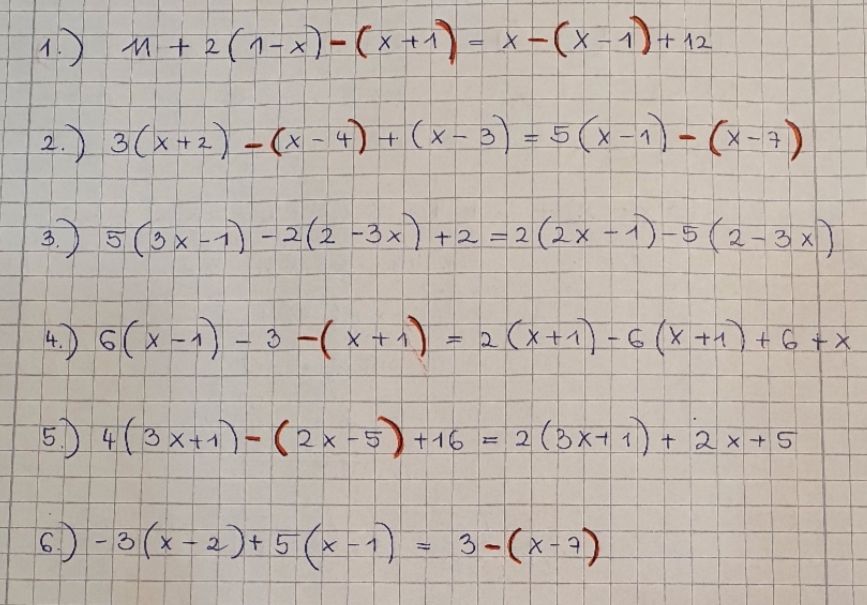 1.) 11 + 2(1-x)-(x+1) = x-(x-1)+12
2.) 3(x+2) -(x-4)+(x-3) = 5(x-1)-(x-7)
3.) 5(3x-1)-2(2-3x)+2=2(2x-1)-5(2-3x)
4.) 6(x-1)-3-(x+1) = 2(x+1)-6(x+1)+6+x
5.) 4(3x+1)-(2x-5)+16 = 2(3x+1)+2x+5
6.) -3(x-2)+5(x-1) = 3-(x-7)